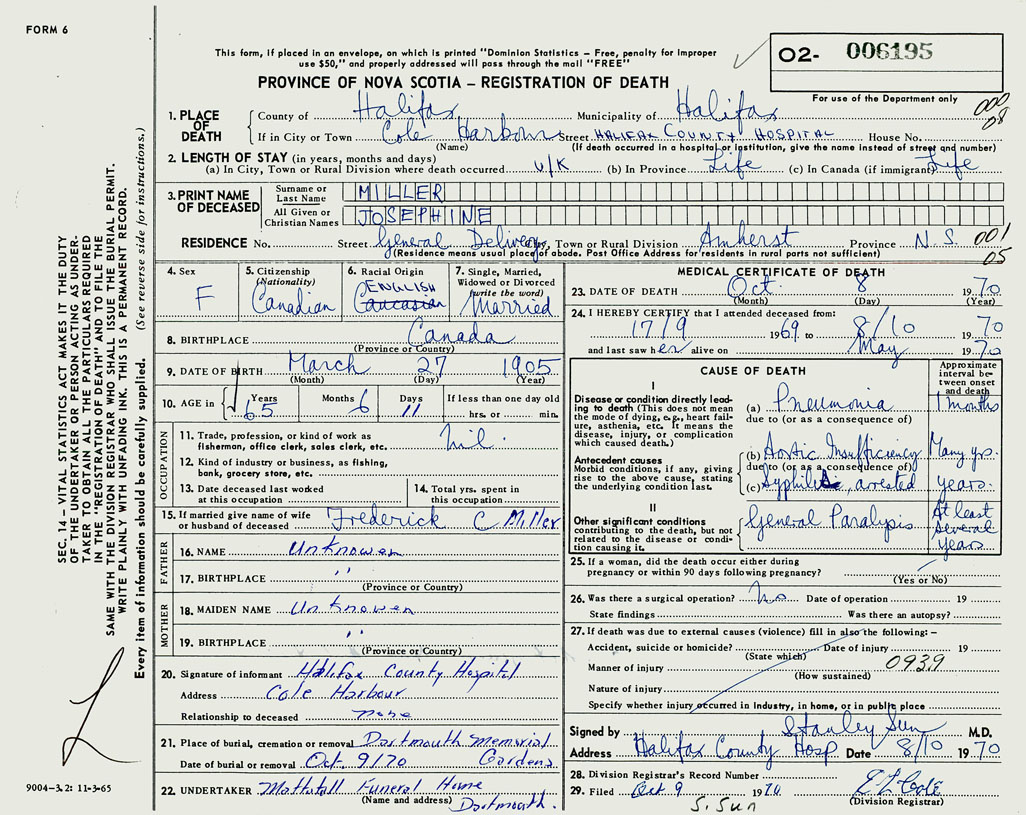 FORM 6
This form, if placed in an envelope, on which is printed "Dominion Statistics – Free, penalty for improper
use $50," and properly addressed will pass through the mail "FREE"
O2- 006195
For use of the Department only
PROVINCE OF NOVA SCOTIA – REGISTRATION OF DEATH
000
08
1. PLACE OF DEATH
County of Halifax Municipality of Halifax
If in City or Town Cole Harbour Street HALIFAX COUNTY HOSPITAL House No.
(Name) (If death occurred in a hospital or institution, give the name instead of street and number)
2. LENGTH OF STAY (in years, months and days)
(a) In City, Town or Rural Division where death occurred U/K (b) In Province Life (c) In Canada (if immigrant) Life
3. PRINT NAME OF DECEASED
Surname or Last Name MILLER
All Given or Christian Names JOSEPHINE
RESIDENCE No. Street General Delivery, Town or Rural Division Amherst Province N.S. 001
(Residence means usual place of abode. Post Office Address for residents in rural parts not sufficient) 05
4. Sex
F
5. Citizenship
(Nationality)
Canadian
6. Racial Origin
ENGLISH
Caucasian
7. Single, Married,
Widowed or Divorced
(write the word)
Married
8. BIRTHPLACE Canada
(Province or Country)
9. DATE OF BIRTH March 27 1905
(Month) (Day) (Year)
10. AGE in
Years Months Days If less than one day old
65 6 11 hrs. or min.
OCCUPATION
11. Trade, profession, or kind of work as
fisherman, office clerk, sales clerk, etc. nil.
12. Kind of industry or business, as fishing,
bank, grocery store, etc.
13. Date deceased last worked
at this occupation
14. Total yrs. spent in
this occupation
15. If married give name of wife
or husband of deceased Frederick C Miller
FATHER
16. NAME Unknowen
17. BIRTHPLACE ''
(Province or Country)
MOTHER
18. MAIDEN NAME Unknowen
19. BIRTHPLACE ''
(Province or Country)
20. Signature of informant Halifax County Hospital
Address Cole Harbour
Relationship to deceased none
21. Place of burial, cremation or removal Dartmouth Memorial
Gardens
Date of burial or removal Oct. 9/70
22. UNDERTAKER Mattatall Funeral Home
(Name and address) Dartmouth.
MEDICAL CERTIFICATE OF DEATH
23. DATE OF DEATH Oct 8 1970
(Month) (Day) (Year)
24. I HEREBY CERTIFY that I attended deceased from:
17/9 1969 to 8/10 1970
and last saw her alive on May 1970
CAUSE OF DEATH
Approximate
interval be-
tween onset
and death
I
Disease or condition directly lead-
ing to death (This does not mean
the mode of dying, e.g., heart fail-
ure, asthenia, etc. It means the
disease, injury, or complication
which caused death.)
(a) Pneumonia 1 months
due to (or as a consequence of)
Antecedent causes
Morbid conditions, if any, giving
rise to the above cause, stating
the underlying condition last.
(b) Aortic Insufficiency Many yrs.
due to (or as a consequence of)
(c) Syphilis, arrested years.
II
Other significant conditions
contributing to the death, but not
related to the disease or condi-
tion causing it.
General Paralysis At least
several
years
25. If a woman, did the death occur either during
pregnancy or within 90 days following pregnancy?
(Yes or No)
26. Was there a surgical operation? No Date of operation 19
State findings Was there an autopsy?
27. If death was due to external causes (violence) fill in also the following:–
Accident, suicide or homicide? Date of injury 19
(State which)
Manner of injury 0939
(How sustained)
Nature of injury
Specify whether injury occurred in Industry, in home, or in public place
Signed by Stanley Sun M.D.
Address Halifax County Hosp Date 8/10 1970
28. Division Registrar's Record Number
29. Filed Oct 9 1970 E L Cole
(Division Registrar)
S. Sun
SEC. 14 – VITAL STATISTICS ACT MAKES IT THE DUTY
OF THE UNDERTAKER OR PERSON ACTING AS UNDER-
TAKER TO OBTAIN ALL THE PARTICULARS REQUIRED
IN THE "REGISTRATION OF DEATH" AND TO FILE THE
SAME WITH THE DIVISION REGISTRAR WHO SHALL ISSUE THE BURIAL PERMIT.
WRITE PLAINLY WITH UNFADING INK. THIS IS A PERMANENT RECORD.
Every item of information should be carefully supplied. (See reverse side for instructions.)
9004-3.2: 11-3-65